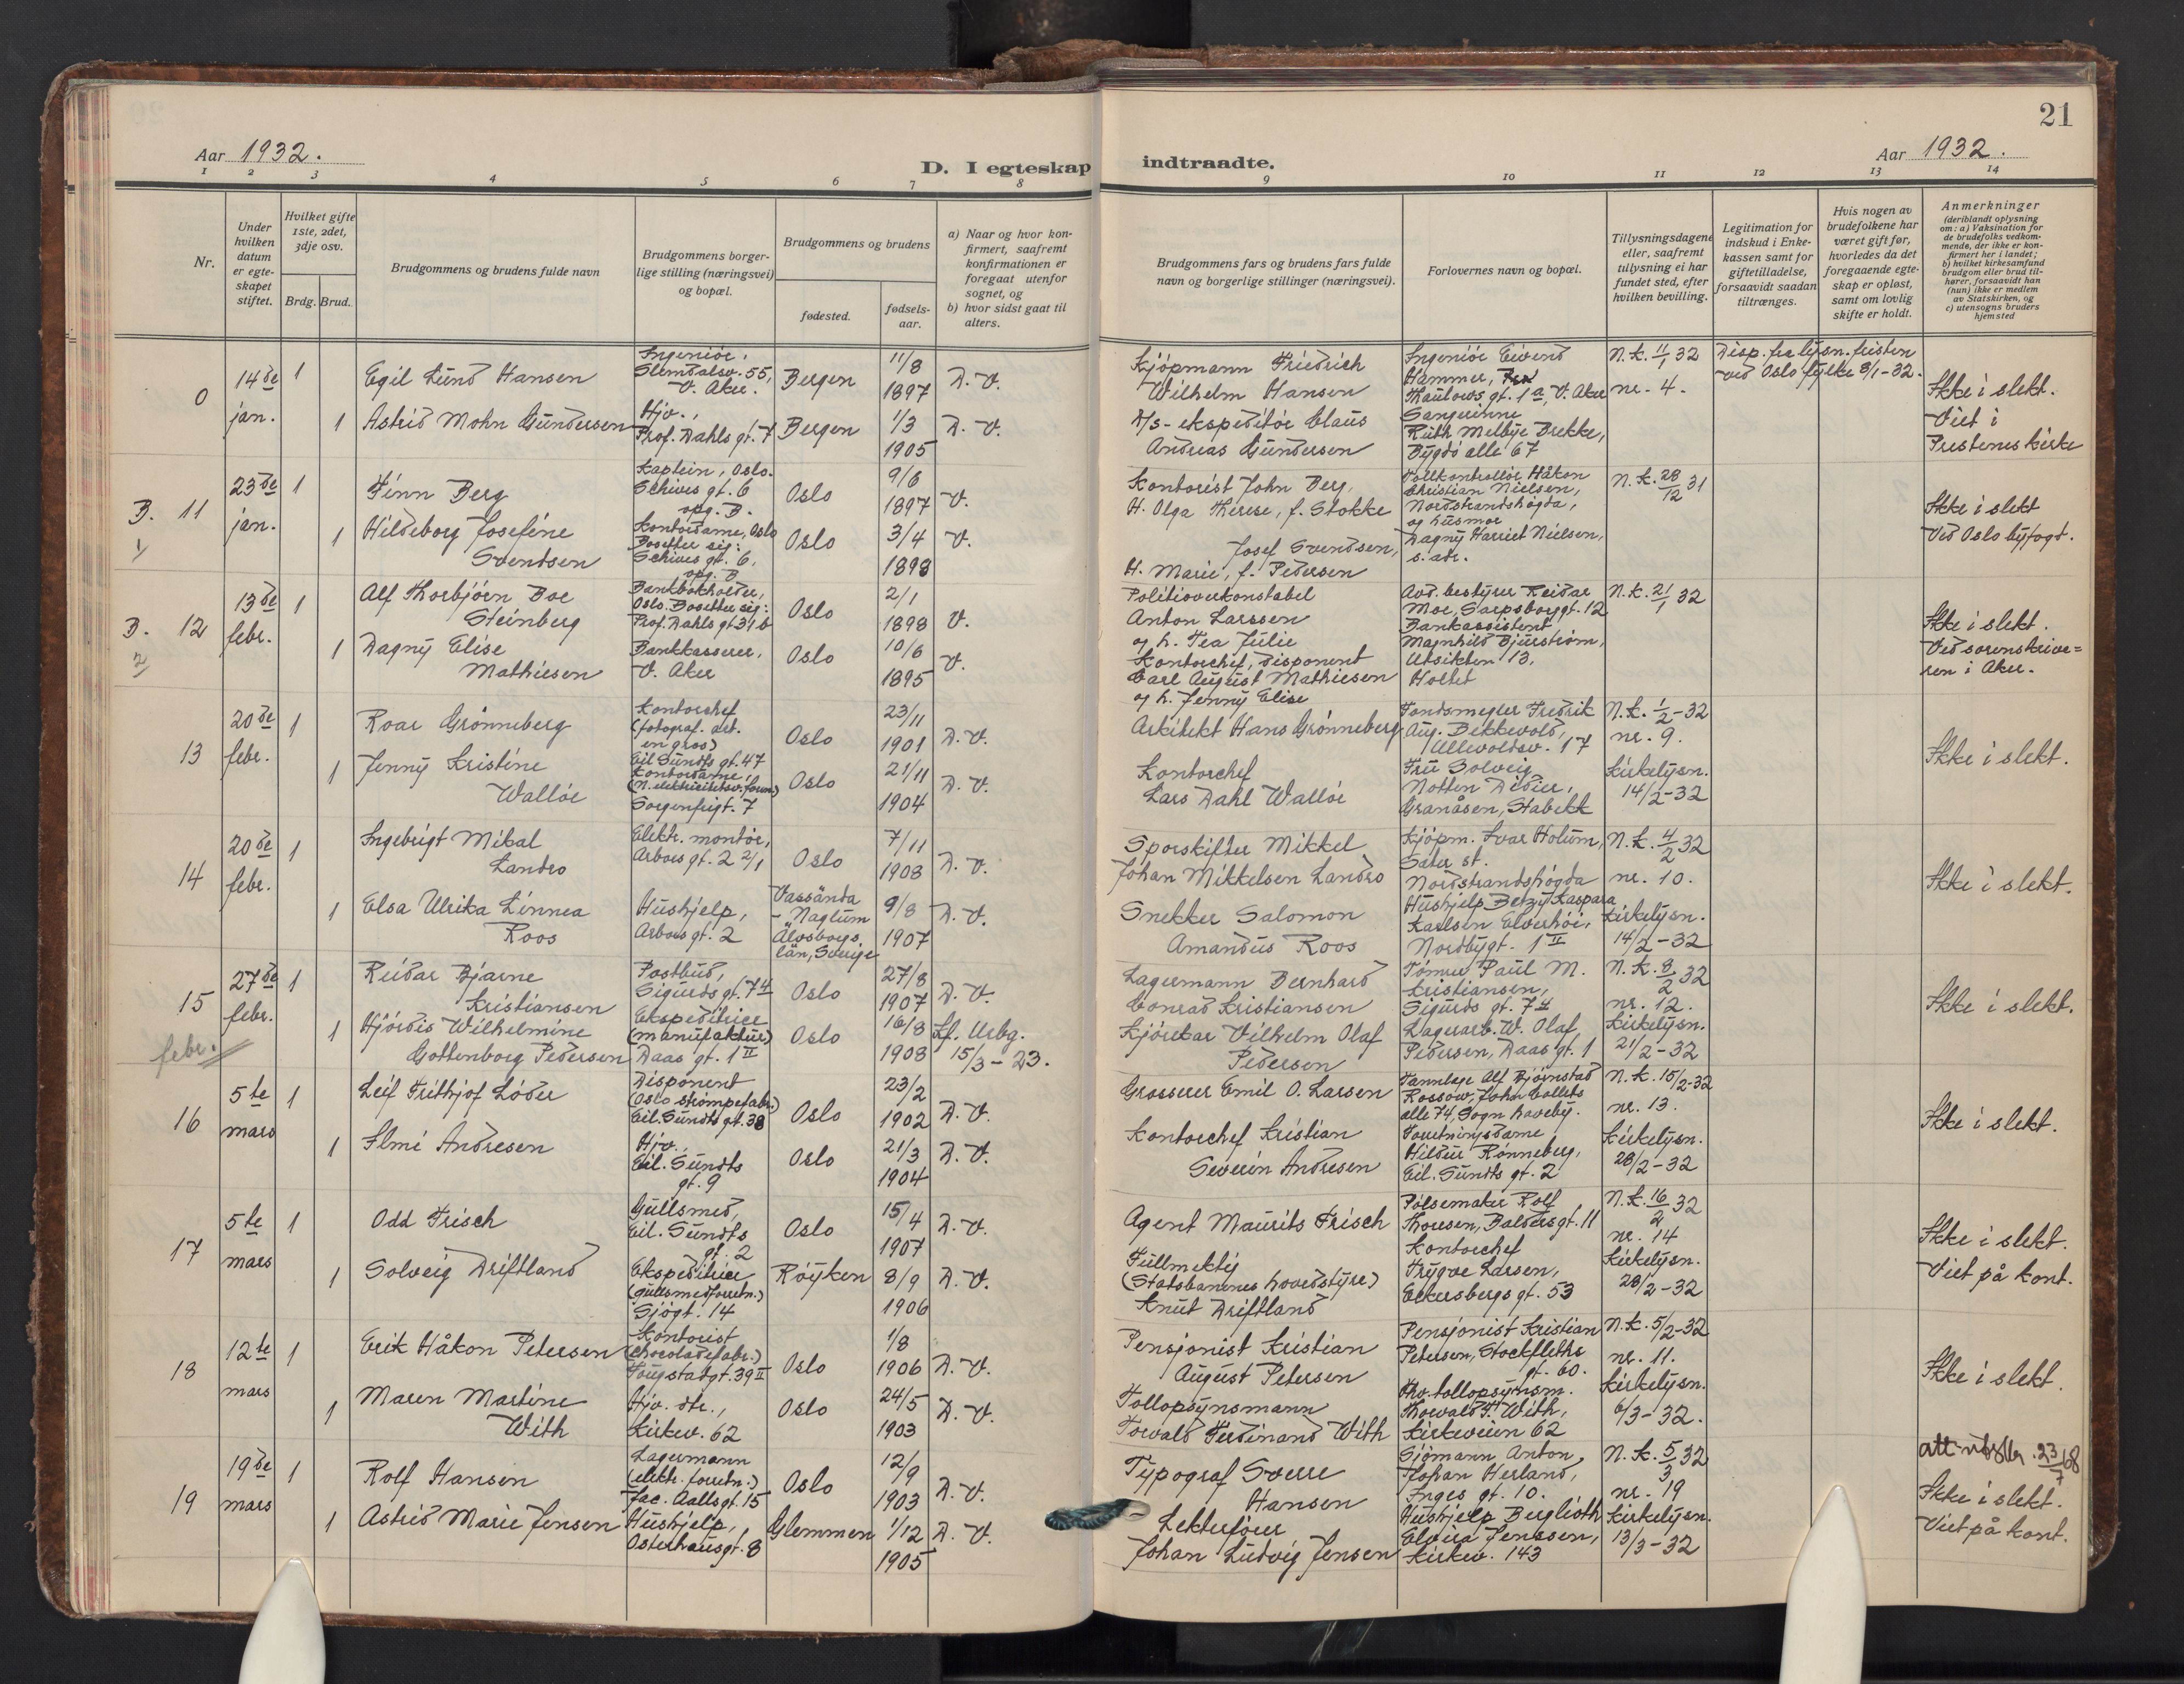 21
Aar 1932.
D. I egteskap indtraadte.
Aar 1932.
1 2 3 4 5 6 7 8 9 10 11 12 13 14
Nr.
Under hvilken datum er egte-skapet stiftet.
Hvilket gifte 1ste, 2det, 3dje osv.
Brdg. Brud.
Brudgommens og brudens fulde navn
Brudgommens borger-
lige stilling (næringsvei)
og bopæl.
Brudgommens og brudens
fødested.
fødsels-
aar.
a) Naar og hvor kon-
firmert, saafremt
konfirmationen er
foregaat utenfor
sognet, og
b) hvor sidst gaat til
alters.
Brudgommens fars og brudens fars fulde
navn og borgerlige stillinger (næringsvei).
Forlovernes navn og bopæl.
Tillysningsdagene
eller, saafremt
tillysning ei har
fundet sted, efter
hvilken bevilling.
Legitimation for
indskud i Enke-
kassen samt for
giftetilladelse,
forsaavidt saadan
tiltrænges.
Hvis nogen av
brudefolkene har
været gift før,
hvorledes da det
foregaaende egte-
skap er opløst,
samt om lovlig
skifte er holdt.
Anmerkninger
(deriblandt oplysning
om: a) Vaksination for
de brudefolks vedkom-
mende, der ikke er kon-
firmert her i landet;
b) hvilket kirkesamfund
brudgom eller brud til-
hører, forsaavidt han
(hun) ikke er medlem
av Statskirken, og
c) utensogns bruders
hjemsted
0
14de
jan.
1
Egil Lund Hansen
Ingeniör,
Slemdalsv. 55,
V. Aker.
Bergen
11/8
1897
D. V.
Kjöpmann Friedrich
Wilhelm Hansen
Ingeniör Eivend
Hammer,
Thaulows gt. 1a, V. Aker
N.k. 11/1 32
nr. 4.
Disp. fra lysn. fristen
ved Oslo fylke 8/1-32.
Ikke i slekt.
Viet i
Prestenes kirke
1
Astrid Mohn Gundersen
Hjv.,
Prof. Dahls gt. 7
Bergen
1/3
1905
D. V.
D/s-ekspeditör Claus
Andreas Gundersen
Sangerinne
Ruth Melbye Brekke,
Bygdö alle 67
B. 11
1/
23de
jan.
1
Finn Berg
Kaptein, Oslo.
Schives gt. 6
opg. B.
Oslo
9/6
1897
V.
Kontorist John Berg,
H. Olga Therese, f. Stokke
Tollkontrollör Håkon
Christian Nielsen,
Nordstrandshögda,
og husmor
Dagny Harriet Nielsen,
s. adr.
N.k. 28/12 31
Ikke i slekt
Ved Oslo byfogd.
1
Hildeborg Josefine
Svendsen
Kontordame, Oslo
Bosetter sig:
Schives gt. 6,
opg. B
Oslo
3/4
1898
V.
Josef Svendsen,
H. Marie, f. Pedersen
B. 12
2/
13de
febr.
1
Alf Thorbjörn Boe
Steinberg
Bankbokholder,
Oslo. Bosetter sig:
Prof. Dahls gt 31b
Oslo
2/1
1898
V.
Politioverkonstabel
Anton Larssen
og h. Tea Julie
Avd. bestyrer Reidar
Moe, Sarpsborggt. 12
Bankassistent
Magnhild Bjurström,
Utsikten 13,
Holtet
N.k. 21/1 32
Ikke i slekt.
Ved sorenskrive=
ren i Aker.
1
Dagny Elise
Mathiesen
Bankkasserer,
V. Aker
Oslo
10/6
1895
V.
Kontorchef, disponent
Carl August Mathiesen
og h. Jenny Elise
13
20de
febr.
1
Roar Grönneberg
Kontorchef
(fotograf. art.
en gros)
Eil. Sundts gt. 47
Oslo
23/11
1901
D. V.
Arkitekt Hans Grönneberg
Fondsmegler Fredrik
Aug. Bekkevold,
Ullevoldsv. 17
N.k. 1/2-32
nr. 9.
Kirkelysn.
14/2-32
Ikke i slekt.
1
Jenny Kristine
Wallöe
Kontordame,
(N. elektricitetsv. foren)
Sorgenfrigt. 7
Oslo
21/11
1904
D. V.
Kontorchef
Lars Dahl Wallöe
Fru Solveig
Notten Didier,
Granåsen, Stabekk
14
20de
febr.
1
Ingebrigt Mikal
Landro
Elektr. montör,
Arbos gt. 2 2/1
Oslo
7/11
1908
D. V.
Sporskifter Mikkel
Johan Mikkelsen Landro
Kjöpm. Ivar Holum,
Sæter st.
Nordstrandshögda
N.k. 4/2 32
nr. 10.
Kirkelysn.
14/2-32
Ikke i slekt.
1
Elsa Ulrika Linnea
Roos
Hushjelp,
Arbos gt. 2
Vassända
- Naglum
Älvsborgs
län, Sverige
9/8
1907
D. V.
Snekker Salomon
Amandus Roos
Hushjelp Betzy Kaspara
Karlsen Elverhöi,
Nordbygt. 1 II
15
febr.
27de
febr.
1
Reidar Bjarne
Kristiansen
Postbud,
Sigurds gt. 7 4
Oslo
27/8
1907
D. V.
Lagermann Bernhard
Conrad Kristiansen
Tömrer Paul M.
Kristiansen,
Sigurds gt. 7 4
N.k. 8/2 32
nr. 12.
Kirkelysn.
21/2-32
Ikke i slekt.
1
Hjördis Wilhelmine
Gottenborg Pedersen
Ekspeditrice
(manufaktur)
Daas gt. 1 II
Oslo
16/8
1908
Kf. Urbg.
15/3-23.
Kjörekar Vilhelm Olaf
Pedersen
Lagerarb. W. Olaf
Pedersen, Daas gt. 1
16
5te
mars
1
Leif Frithjof Löder
Disponent
(Oslo strömpefabr.)
Eil. Sundts gt. 38
Oslo
23/2
1902
D. V.
Grosserer Emil O. Larsen
Tannlæge Alf Björnstad
Rossow, John Colletts
alle 74, Sogn haveby.
N.k. 15/2-32
nr. 13.
Kirkelysn.
28/2-32
Ikke i slekt.
1
Ilmi Andresen
Hjv.,
Eil. Sundts
gt. 9
Oslo
21/3
1904
D. V.
Kontorchef Kristian
Severin Andresen
Forretningsdame
Hildur Rönneberg,
Eil. Sundts gt. 2
17
5te
mars
1
Odd Frisch
Gullsmed,
Eil. Sundts
gt. 2
Oslo
15/4
1907
D. V.
Agent Maurits Frisch
Pölsemaker Rolf
Thoresen, Baldersgt. 11
N.k. 16/2 32
nr. 14
Kirkelysn.
28/2-32
Ikke i slekt.
Viet på kont.
1
Solveig Driftland
Ekspeditrice
(gullsmedforretn.)
Sjögt. 14
Röyken
8/9
1906
D. V.
Fullmektig
(Statsbanenes hovedstyre)
Knut Driftland
Kontorchef
Trygve Larsen,
Eckersbergs gt. 53
18
12te
mars
1
Erik Håkon Petersen
Kontorist
(chocoladefabr.)
Fougstadgt. 39 II
Oslo
1/8
1906
D. V.
Pensjonist Kristian
August Petersen
Pensjonist Kristian
Petersen, Stockfleths
gt. 60.
N.k. 5/2-32
nr. 11.
Kirkelysn.
6/3-32.
Ikke i slekt.
1
Maren Martine
With
Hjv. dtr.,
Kirkev. 62
Oslo
24/5
1903
D. V.
Tollopsynsmann
Torvald Ferdinand With
Thv. tollopsynsm.
Thorvald F. With,
Kirkeveien 62
19
19de
mars
1
Rolf Hansen
Lagermann
(elektr. forretn.)
Jac. Aallsgt. 15
Oslo
12/9
1903
D. V.
Typograf Sverre
Hansen
Sjömann Anton
Johan Herland,
Inges gt. 10.
N.k. 5/3 32
nr. 19
Kirkelysn.
13/3-32
att. utstd. 23/7 68
Ikke i slekt.
Viet på kont.
1
Astrid Marie Jensen
Hushjelp,
Osterhausgt. 8
Glemmen
1/12
1905
D. V.
Lekterförer
Johan Ludvig Jensen
Hushjelp Berglioth
Elvira Jenssen,
Kirkev. 143